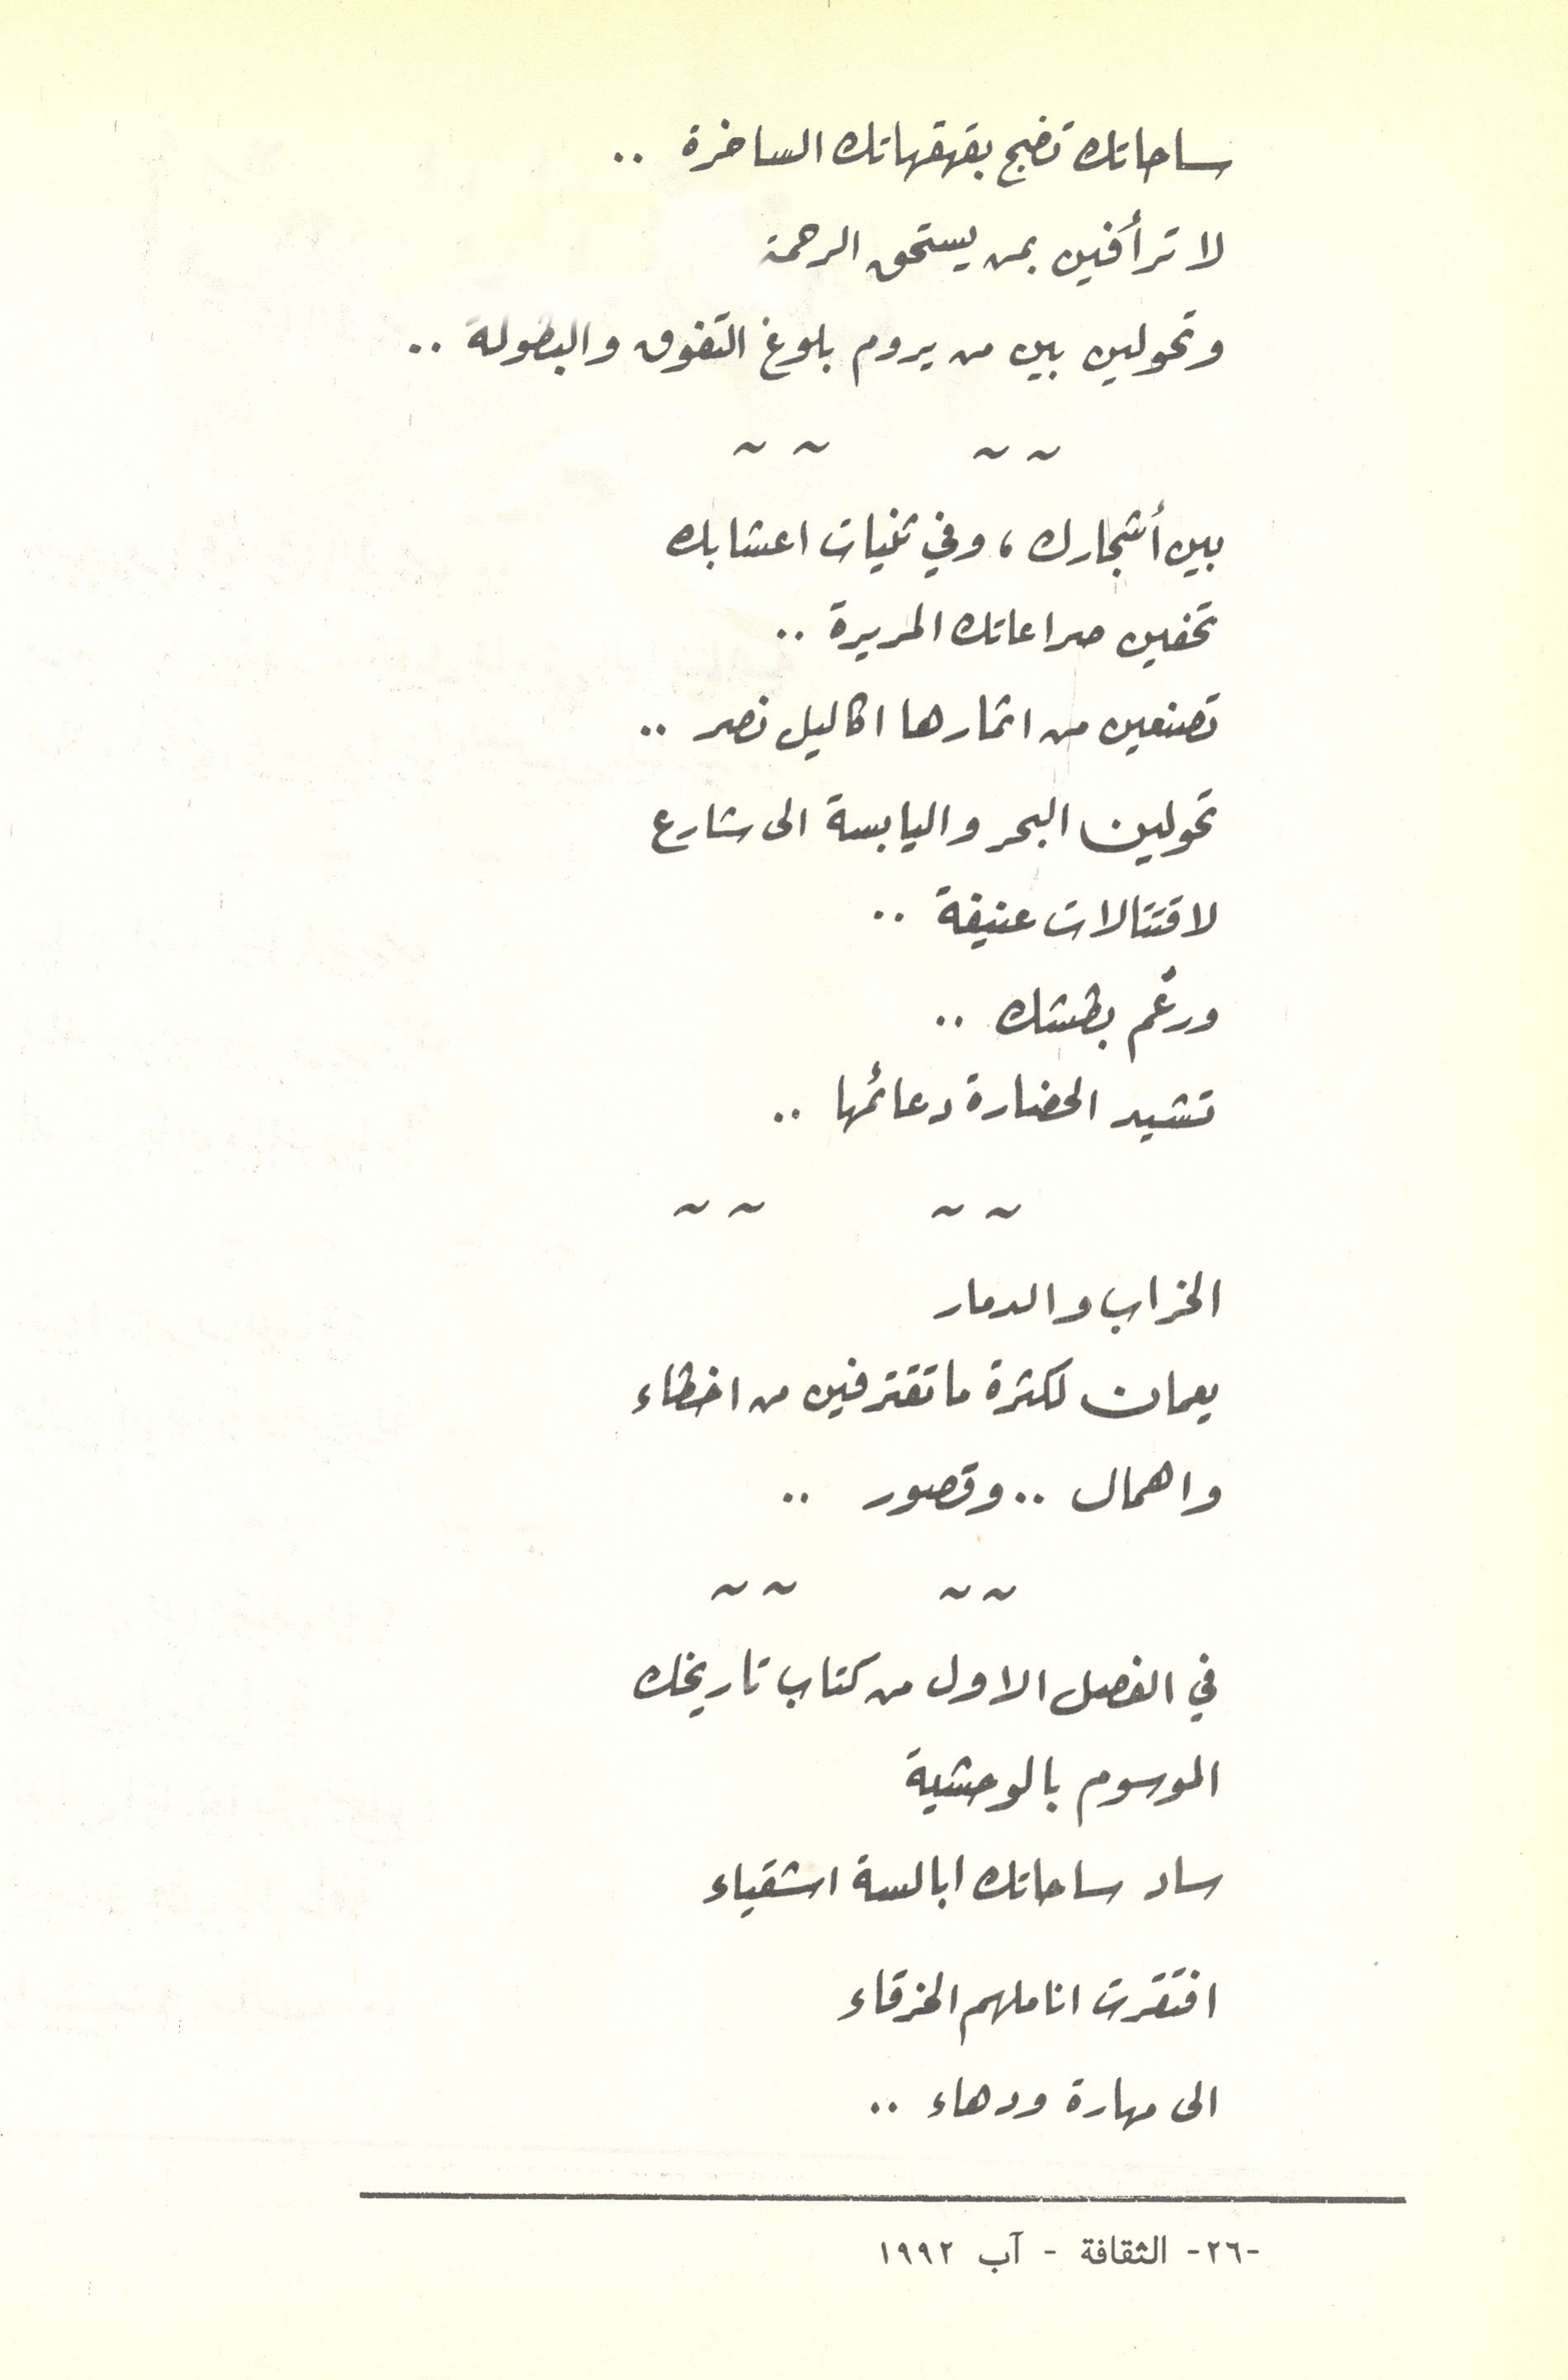 ساحاتك تضج بقهقهاتك الساخرة ..
لا ترأفين بمن يستحق الرحمة
وتحولين بين من يروم بلوغ التفوق والبطولة ..
~ ~ ~ ~
بين أشجارك، وفي ثنيات اعشابك
تخفين صراعاتك المريرة ..
تصنعين من اثمارها اكاليل نصر ..
تحولين البحر واليابسة الى شارع
لاقتتالات عنيفة ..
ورغم بطشك ..
تشيد الحضارة دعائمها ..
~ ~ ~ ~
الخراب والدمار
يعمان لكثرة ما تقترفين من اخطاء
واهمال .. وقصور ..
~ ~ ~ ~
في الفصل الاول من كتاب تاريخك
الموسوم بالوحشية
ساد ساحاتك ابالسة اشقياء
افتقرت اناملهم الخرقاء
الى مهارة ودهاء ..
-٢٦- الثقافة - آب ١٩٩٢